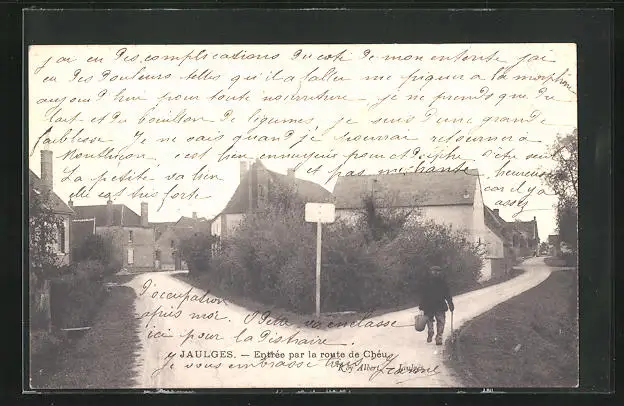 j'ai eu des complications du coté de mon entorte j'ai
eu des douleurs telles qu'il a fallu me piquer a la morphine
aujourd'hui pour toute nourriture je ne prends que du
lait et du bouillon de légumes je suis d'une grande
faiblesse Je ne sais quand je pourrai retourner à
Montluçon c'est bien ennuyeux pour d'être heureuse
La petite va bien et pas méchante car il y a
elle est très forte assez
d'occupation
après moi. Odette enclasse
ici pour la distraire
JAULGES. — Entrée par la route de Chéu
Je vous embrasse Jeanne
Roy Albert, Jaulges